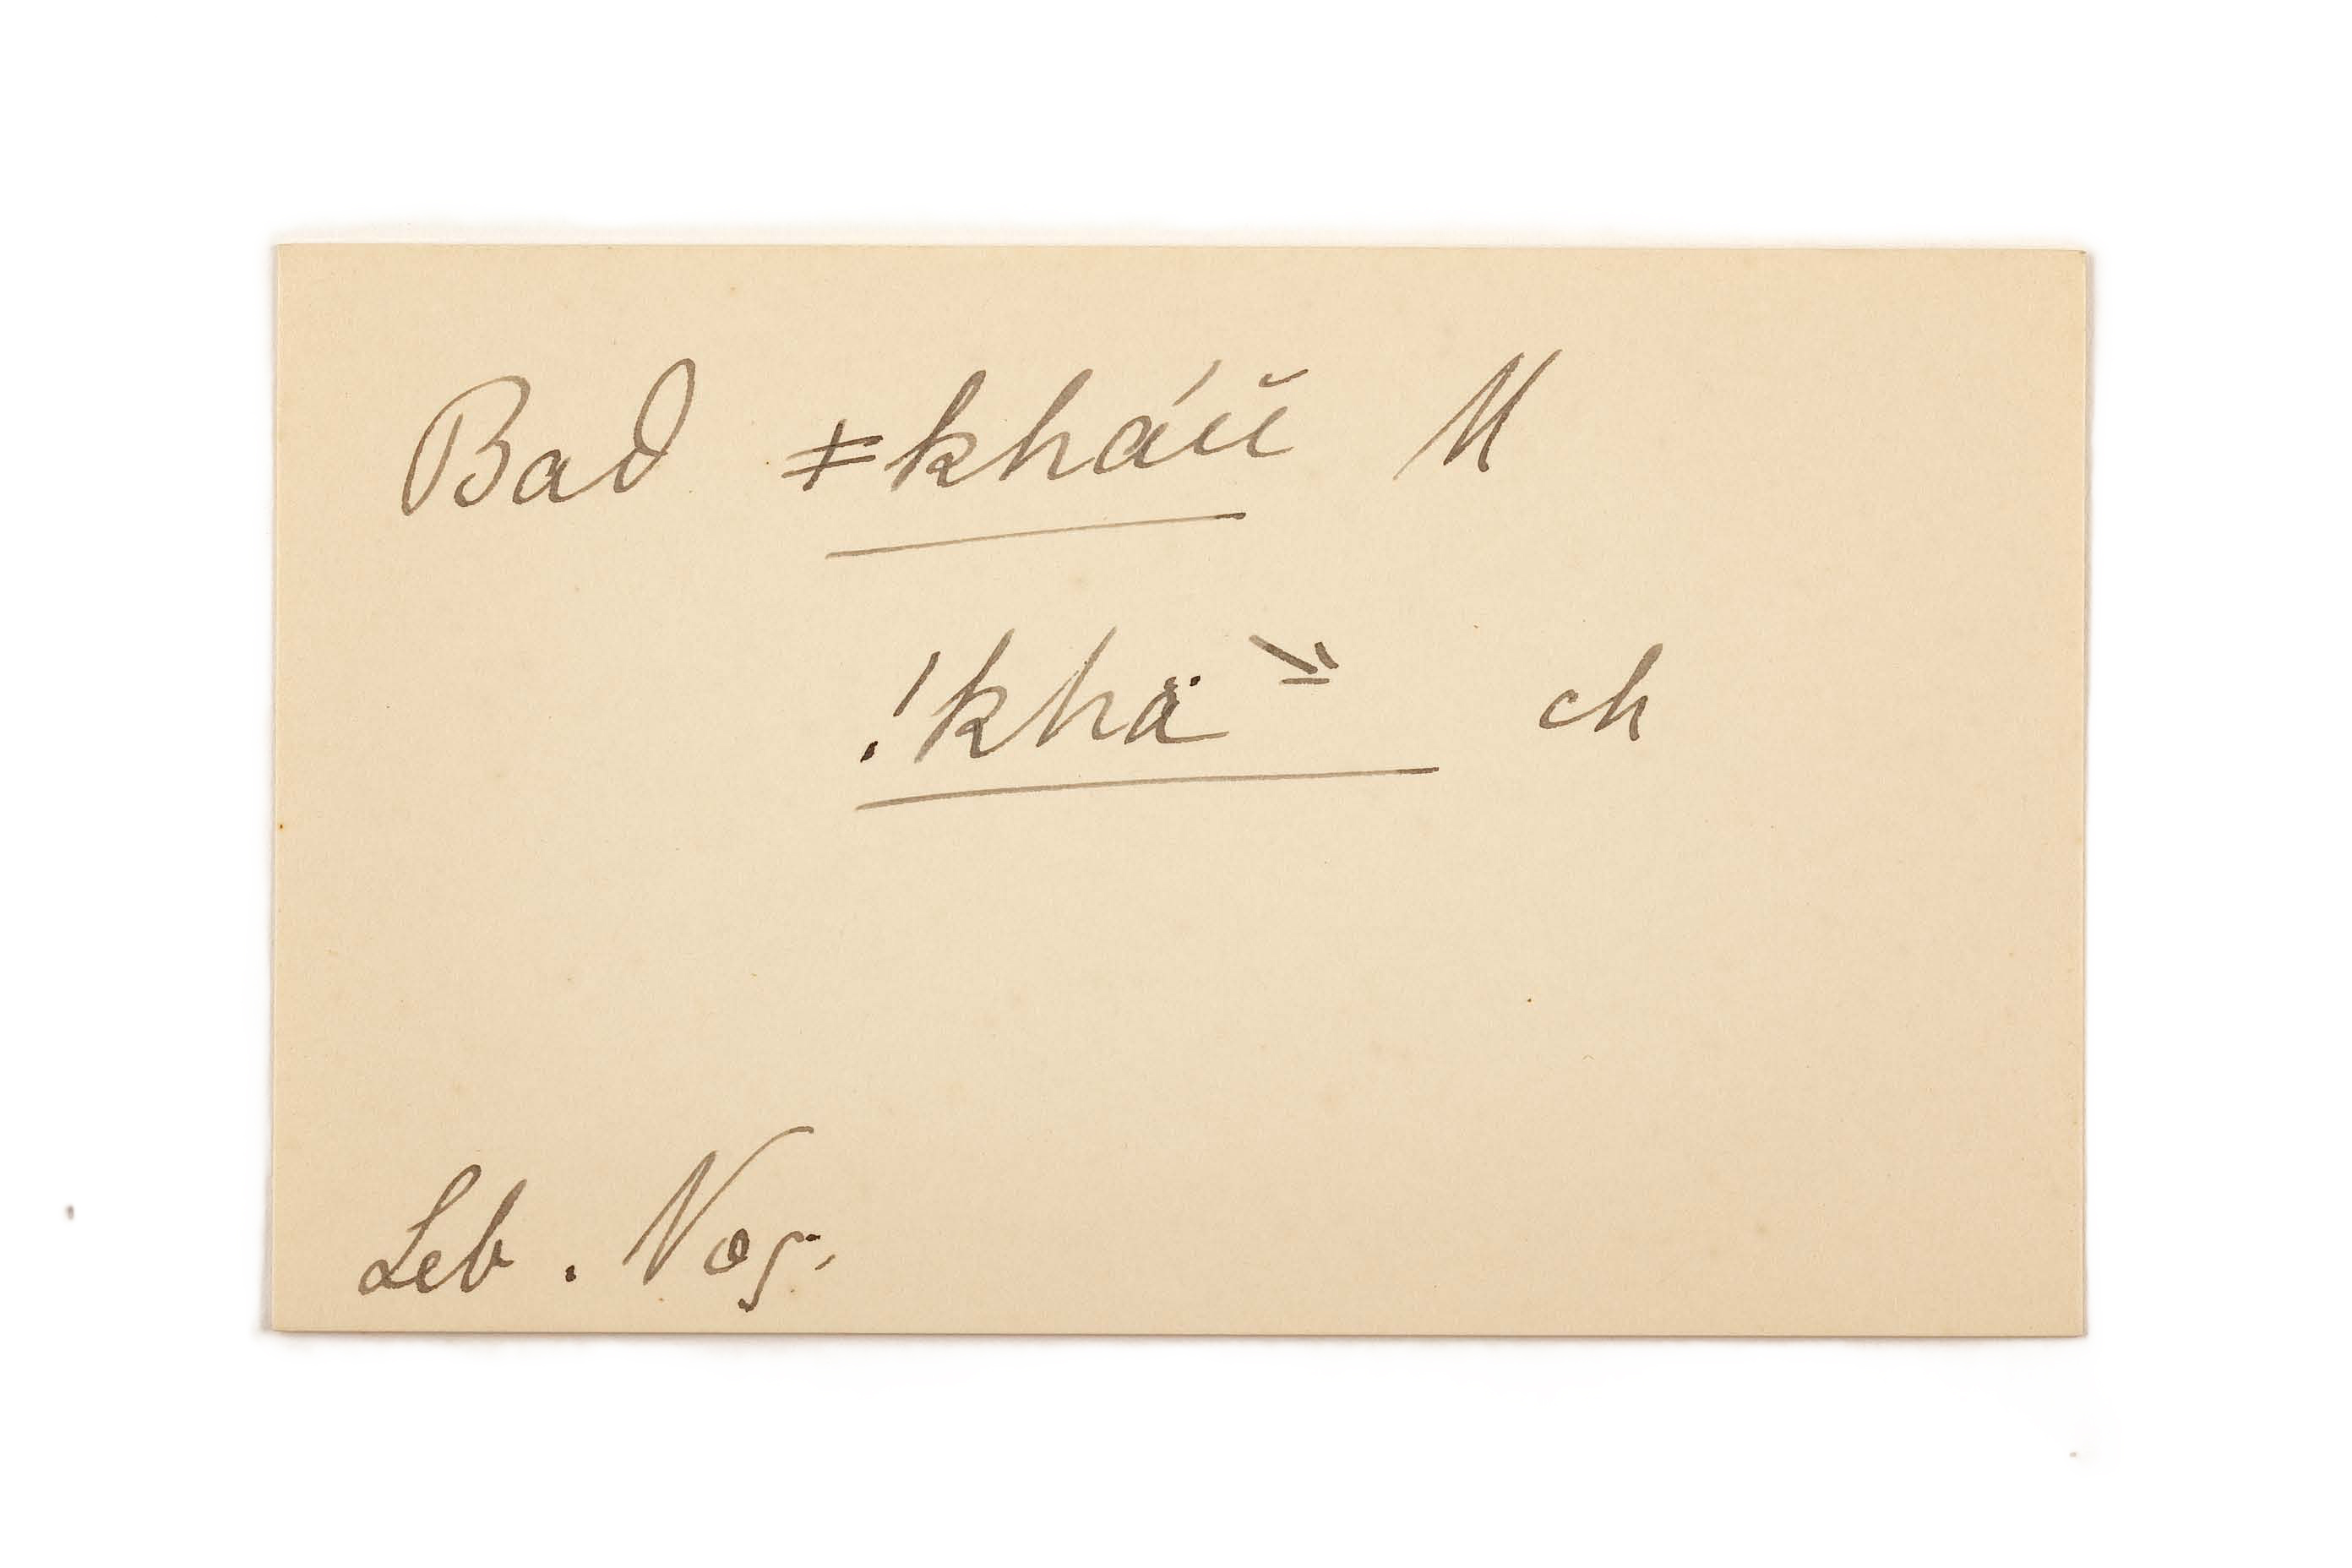 Bad ǂkháŭ M
!khä ch
Leb. Nog.